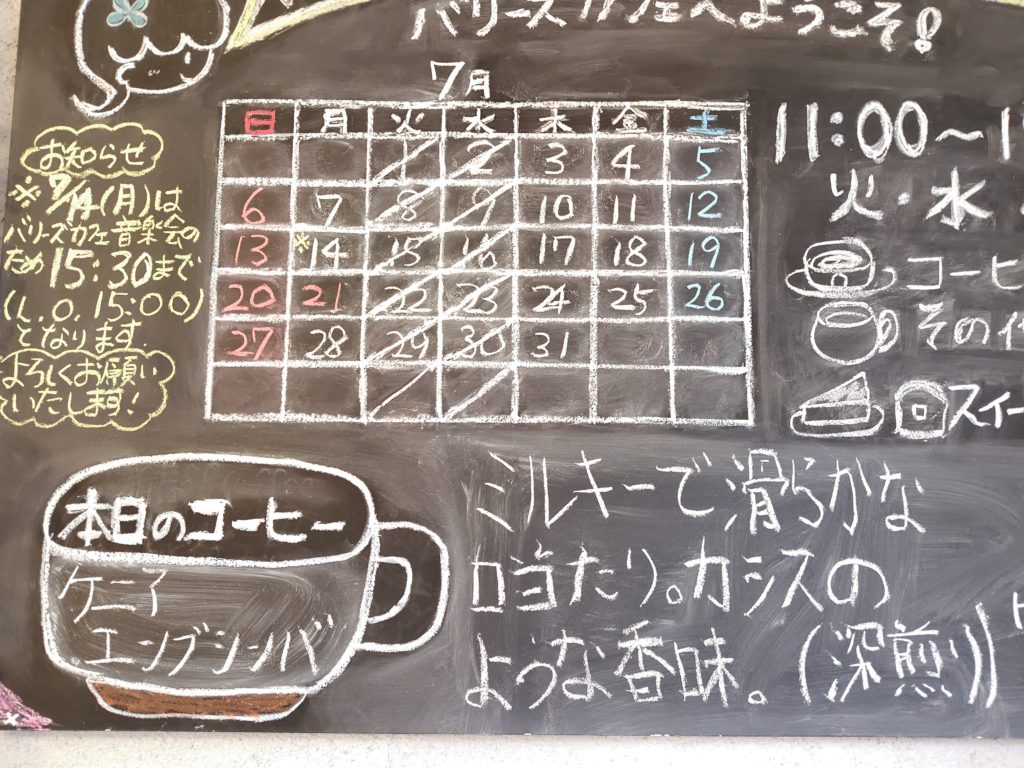 バリーズカフェへようこそ!
7月
日 月 火 水 木 金 土
1 2 3 4 5
6 7 8 9 10 11 12
13 ※14 15 16 17 18 19
20 21 22 23 24 25 26
27 28 29 30 31
お知らせ
※7/14(月)は
バリーズカフェ音楽会の
ため15:30まで
(L.O.15:00)
となります.
よろしくお願い
いたします!
11:00〜1
火・水
コーヒ
その他
スイー
本日のコーヒー
ケニア
エンブシンバ
ミルキーで滑らかな
口当たり。カシスの
ような香味。(深煎り)